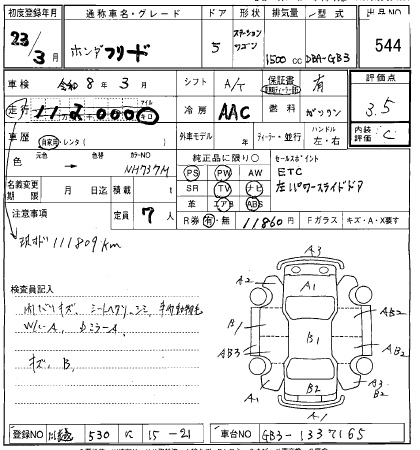 初度登録年月 通称車名・グレード ドア 形状 排気量 型式 出品NO
23年3月 ホンダ フリード 5 ステーションワゴン 1500cc DBA-GB3 544
車検 令和 8年 3月 シフト A/T 保証書 有 評価点
走行 112000 マイル キロ 冷房 AAC 燃料 ガソリン 3.5
車歴 自家用・レンタ( ) 外車モデル 年 ディーラー・並行 ハンドル 左・右 内装評価 C
色 元色 → 色替 カラーNO NH737M
純正品に限り○ セールスポイント
PS PW AW ETC
名義変更期限 月 日迄 積載 t SR TV ナビ 左パワースライドドア
革 エアB ABS
注意事項 定員 7人 R券 有・無 11860円 Fガラス キズ・A・X要す
現メーター 111809km
検査員記入
内ソリキズ、シートヘタリ・シミ
W/C-A、
キズ、B、
A3
A2 A1
B1 AB2
B1
AB3 AB2
A1 B2 A3 B2
A1
登録NO 川越 530 に 15-21 車台NO GB3-1337165